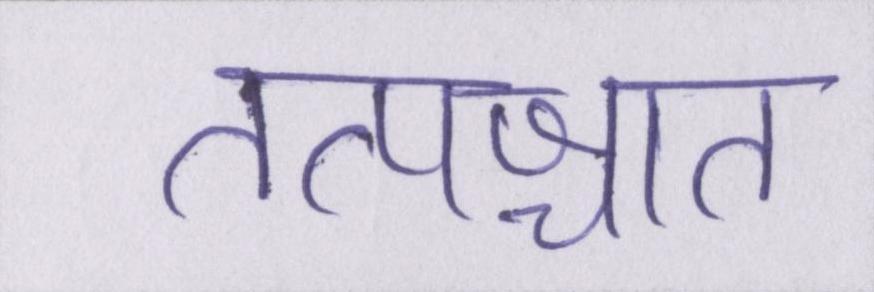 तत्पश्चात